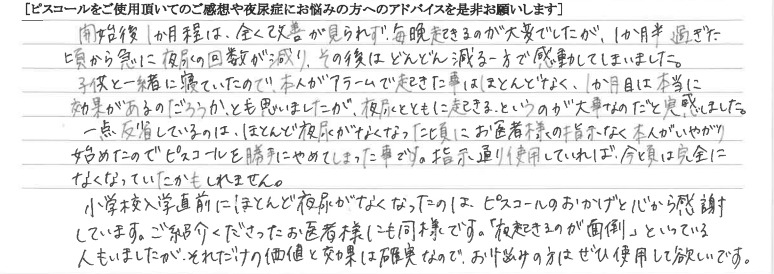 [ピスコールをご使用頂いてのご感想や夜尿症にお悩みの方へのアドバイスを是非お願いします]
開始後1か月程は、全く改善が見られず、毎晩起きるのが大変でしたが、1か月半過ぎた
頃から急に夜尿の回数が減り、その後はどんどん減る一方で感動してしまいました。
子供と一緒に寝ていたので、本人がアラームで起きた事はほとんどなく、1か月目は本当に
効果があるのだろうか、とも思いましたが、夜尿とともに起きる、というのが大事なのだと実感しました。
一点反省しているのは、ほとんど夜尿がなくなった頃にお医者様の指示なく本人がいやがり
始めたのでピスコールを勝手にやめてしまった事です。指示通り使用していれば、今頃は完全に
なくなっていたかもしれません。
小学校入学直前にほとんど夜尿がなくなったのは、ピスコールのおかげと心から感謝
しています。ご紹介くださったお医者様にも同様です。「夜起きるのが面倒」といっている
人もいましたが、それだけの価値と効果は確実なので、お悩みの方はぜひ使用して欲しいです。